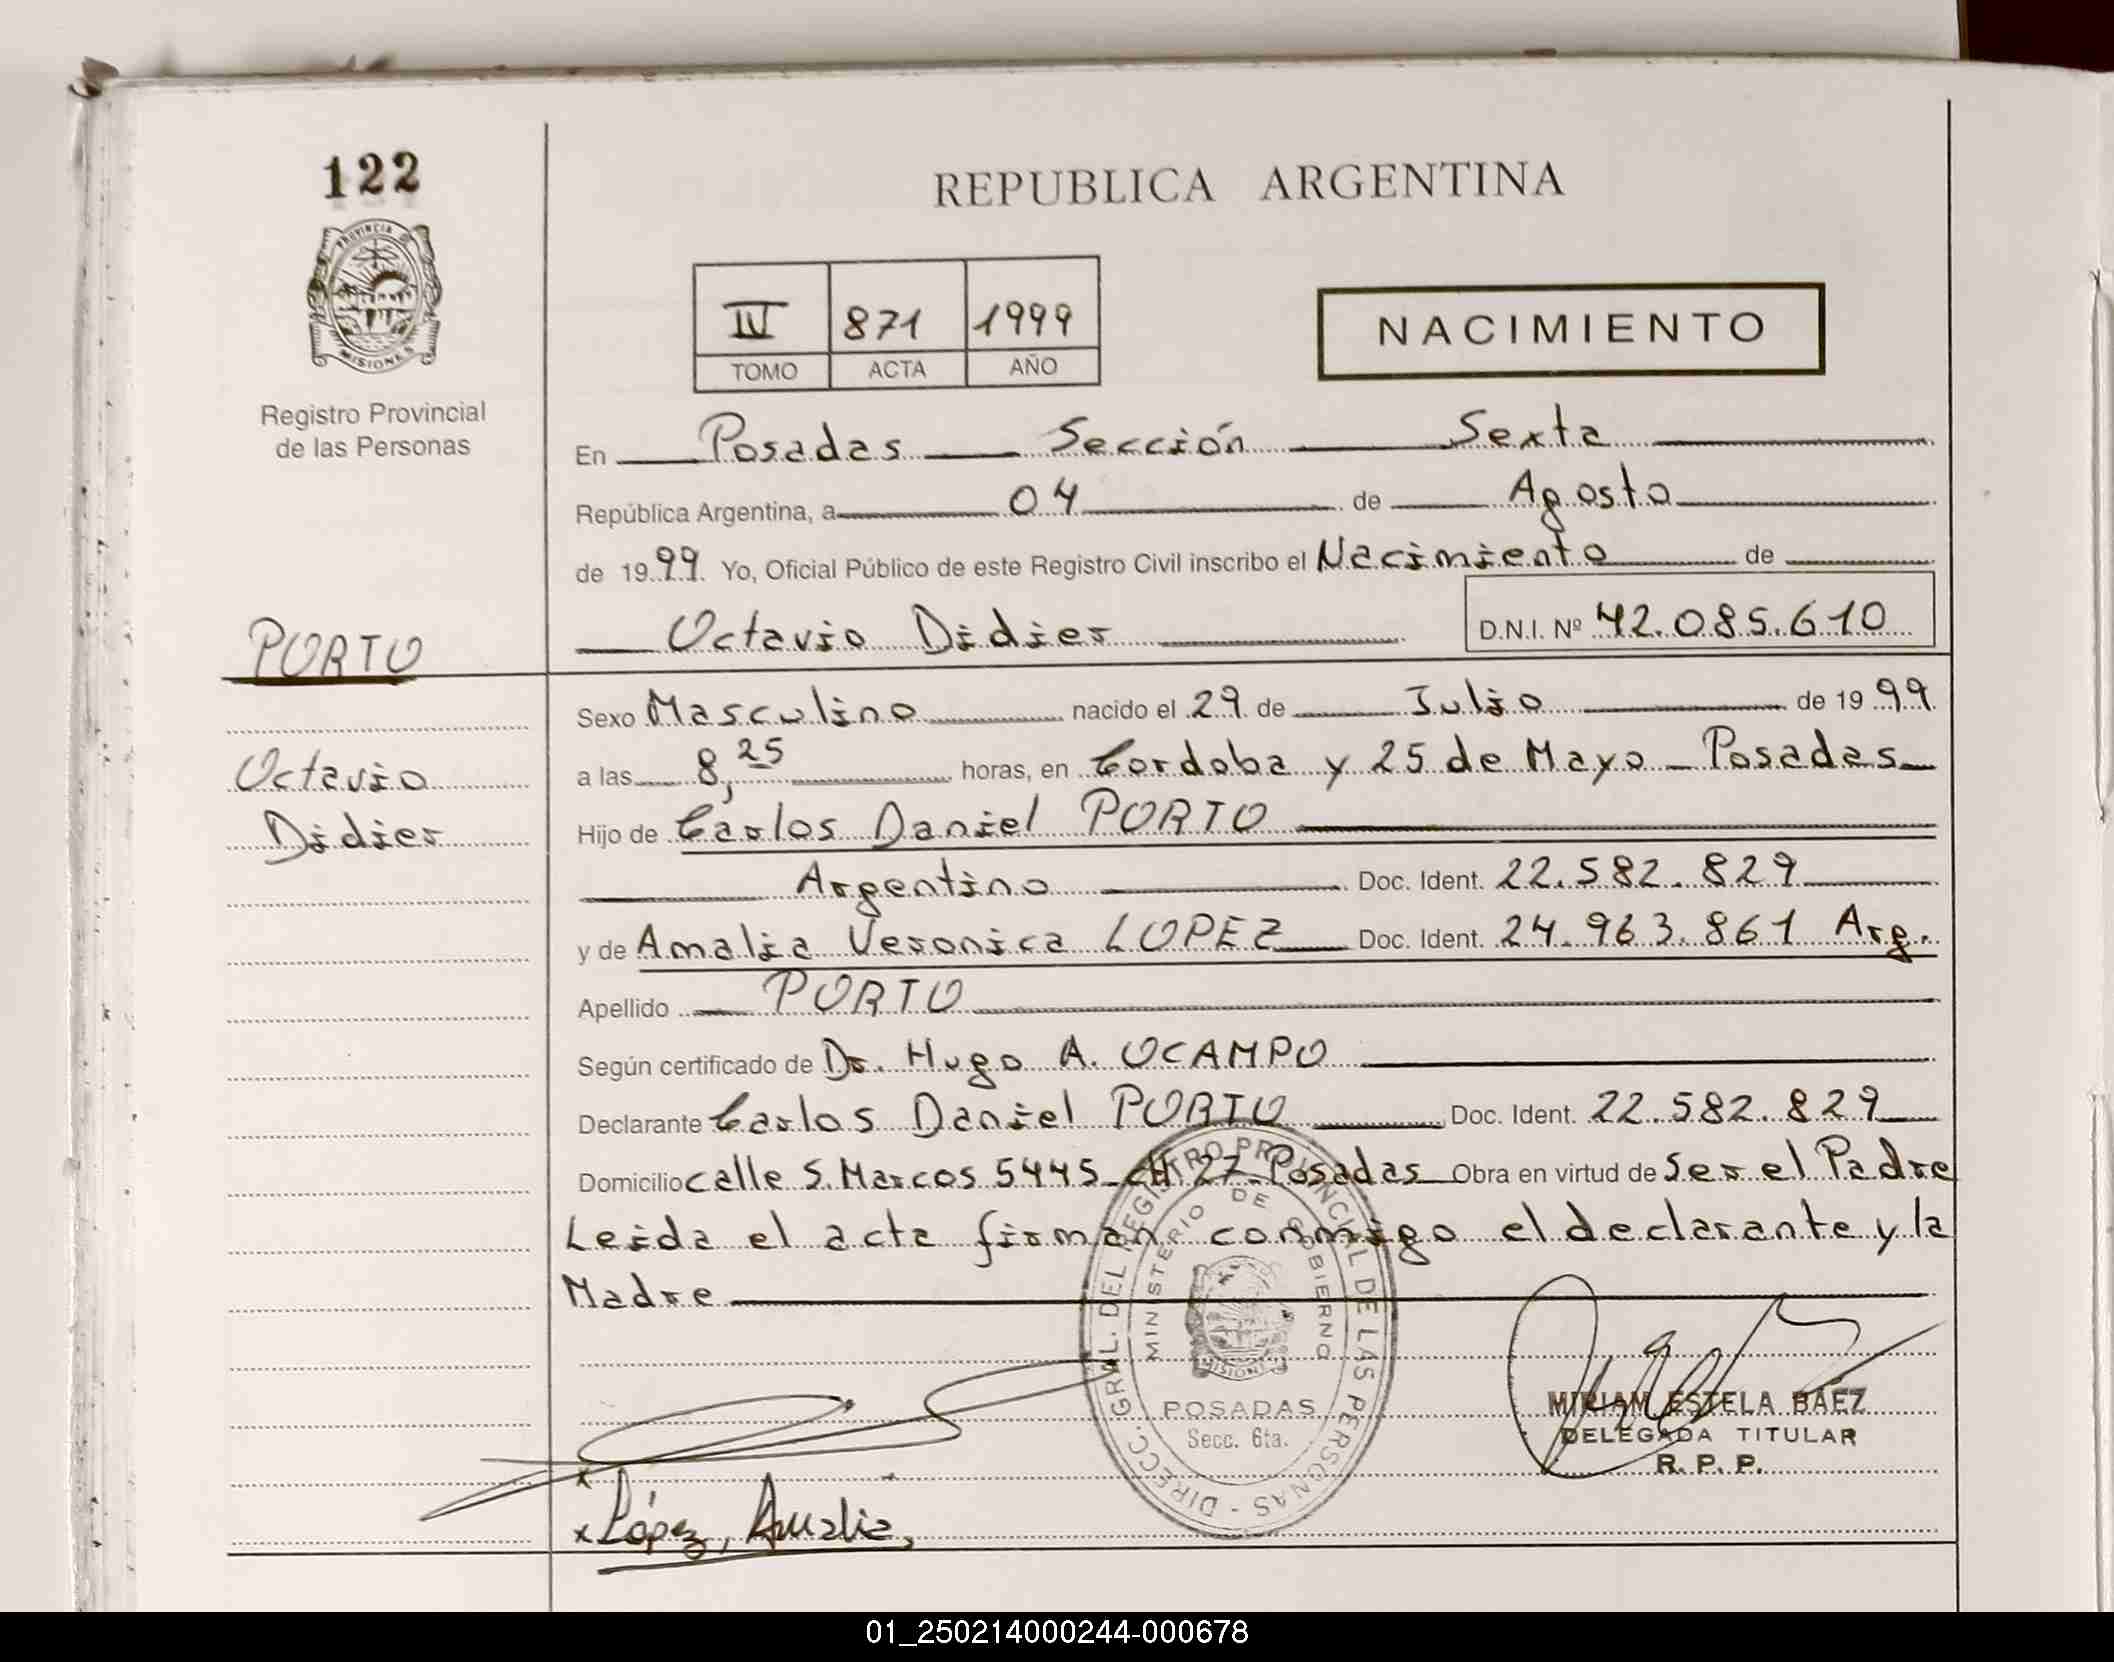 122
PROVINCIA DE
MISIONES
Registro Provincial
de las Personas
PORTO
Octavio
Didier
REPUBLICA ARGENTINA
IV 871 1999
TOMO ACTA AÑO
NACIMIENTO
En Posadas Sección Sexta
República Argentina, a 04 de Agosto
de 1999. Yo, Oficial Público de este Registro Civil inscribo el Nacimiento de
Octavio Didier D.N.I. Nº 42.085.610
Sexo Masculino nacido el 29 de Julio de 1999
a las 8,25 horas, en Cordoba y 25 de Mayo - Posadas
Hijo de Carlos Daniel PORTO
Argentino Doc. Ident. 22.582.829
y de Amalia Veronica LOPEZ Doc. Ident. 24.963.861 Arg.
Apellido PORTO
Según certificado de Dr. Hugo A. OCAMPO
Declarante Carlos Daniel PORTO Doc. Ident. 22.582.829
Domicilio calle S. Marcos 5445 - CH 27 - Posadas Obra en virtud de Ser el Padre
Leida el acta firman conmigo el declarante y la
Madre
DIRECC. GRAL. DEL REGISTRO PROVINCIAL DE LAS PERSONAS -
MINISTERIO DE GOBIERNO
MISIONES
POSADAS
Secc. 6ta.
MIRIAM ESTELA BAEZ
DELEGADA TITULAR
R. P. P.
x
x López, Amalia,
01_250214000244-000678